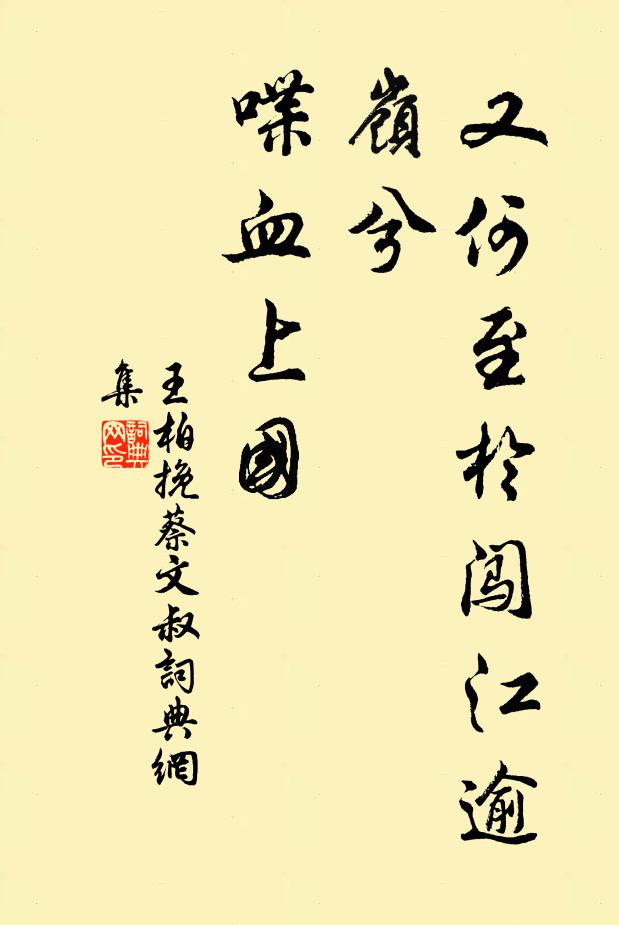 又何至於闯江逾
嶺兮
喋血上國
王柏挽蔡文叔詞典網
集
詞典網印